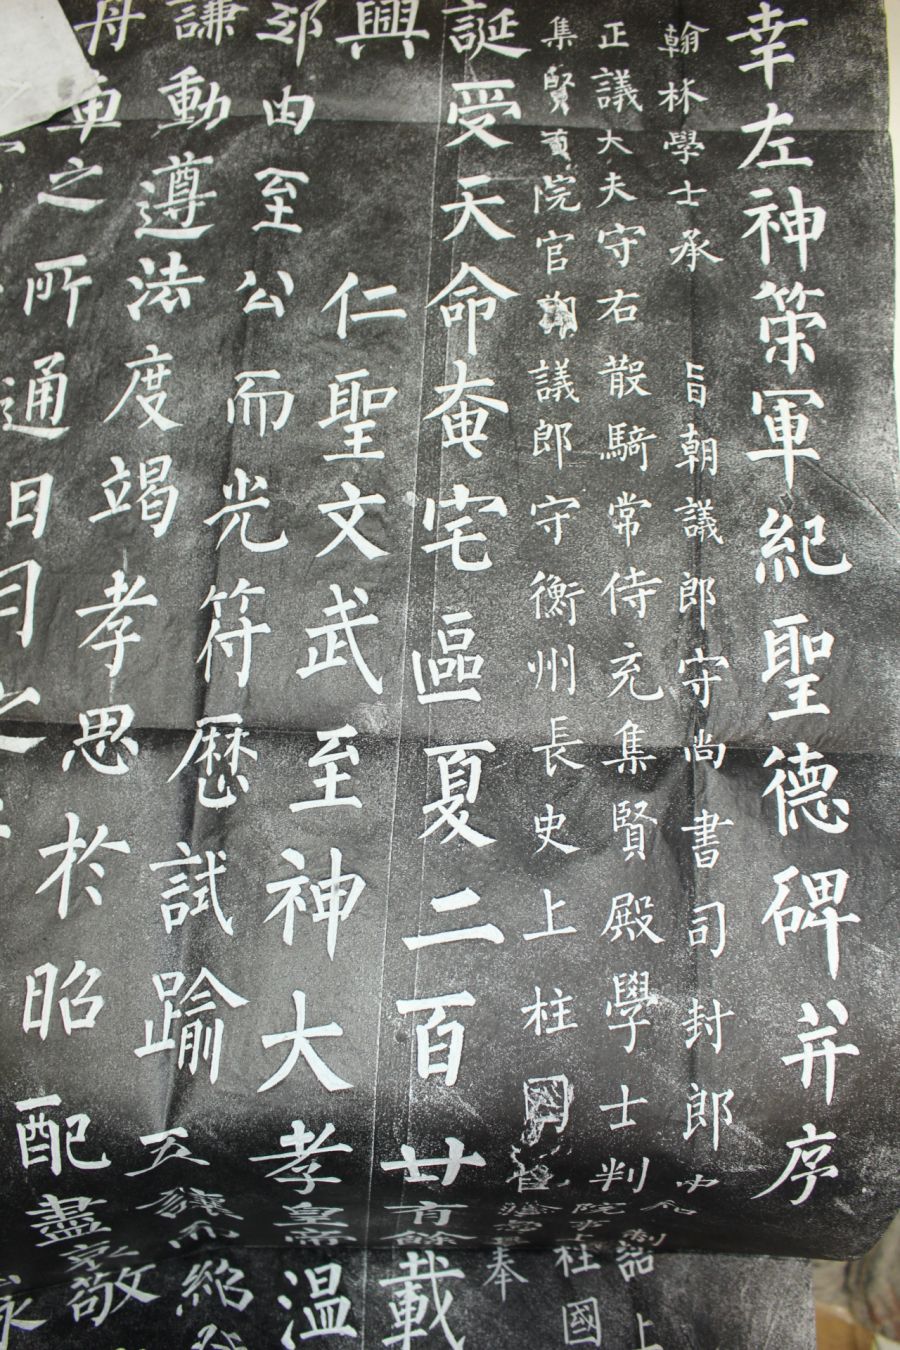 幸左神策軍紀聖德碑并序
翰林學士承旨朝議郎守尚書司封郎中知制誥上
正議大夫守右散騎常侍充集賢殿學士判院事上柱國
集賢直院官朝議郎守衡州長史上柱國奉
誕受天命奄宅區夏二百廿有餘載
興仁聖文武至神大孝皇帝溫
邸由至公而光符曆試踰五讓而紹登
謙動遵法度竭孝思於昭配盡哀敬
舟車之所通日月之